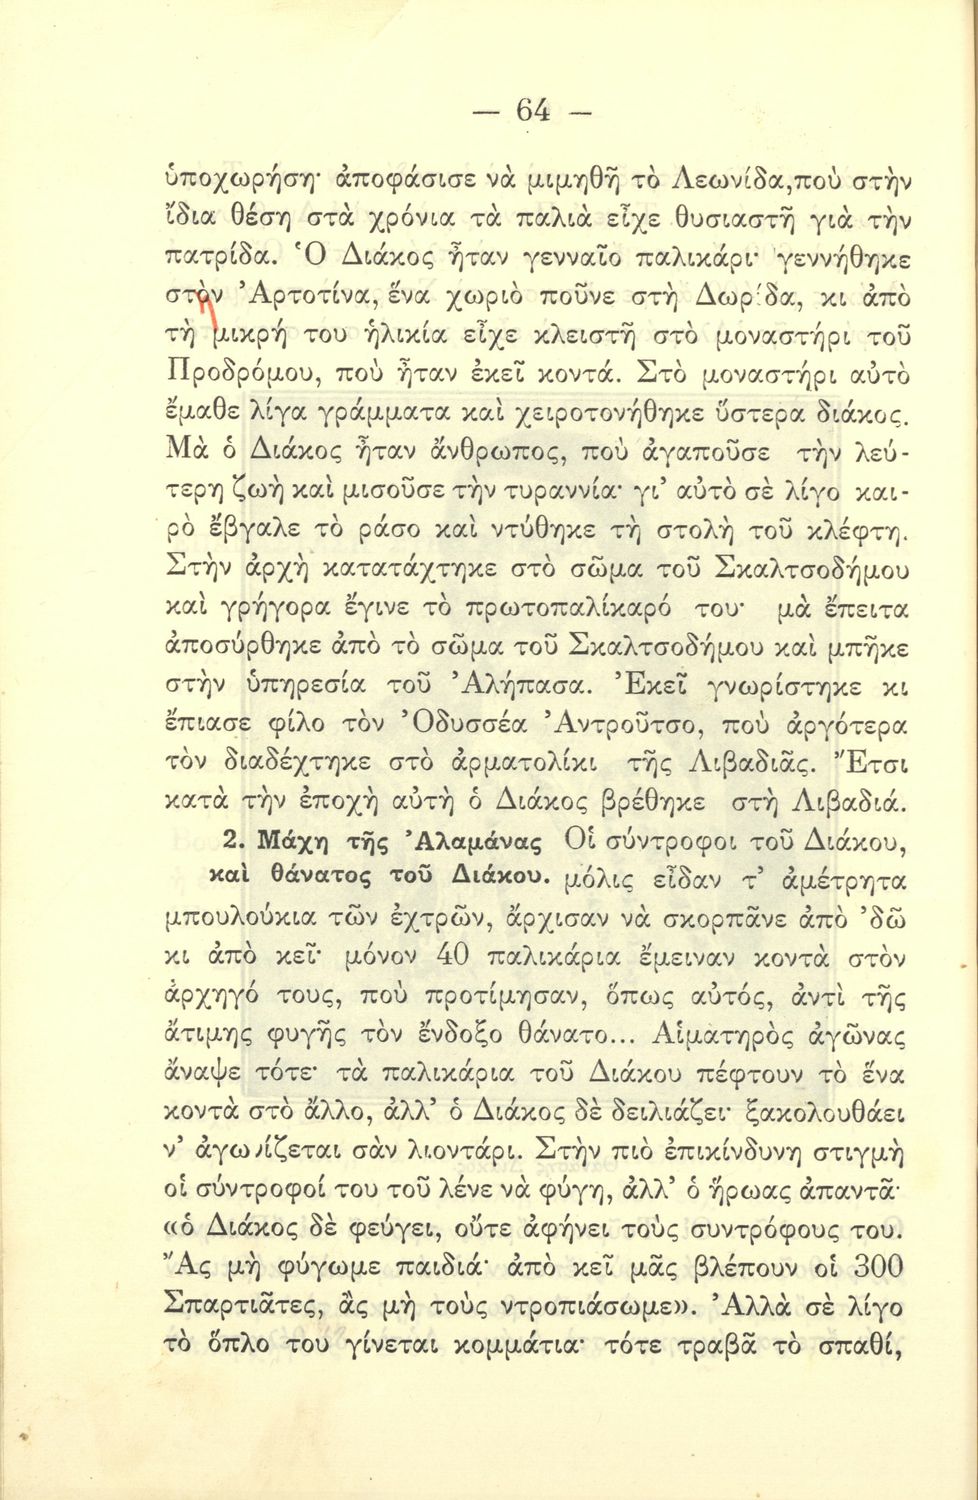 — 64 —
ὑποχωρήση· ἀποφάσισε νὰ μιμηθῆ τὸ Λεωνίδα,ποὺ στὴν
ἴδια θέση στὰ χρόνια τὰ παλιὰ εἶχε θυσιαστῆ γιὰ τὴν
πατρίδα. Ὁ Διάκος ἦταν γενναῖο παλικάρι· γεννήθηκε
στὸν Ἀρτοτίνα, ἕνα χωριὸ ποὖνε στὴ Δωρίδα, κι ἀπὸ
τὴ μικρή του ἡλικία εἶχε κλειστῆ στὸ μοναστήρι τοῦ
Προδρόμου, ποὺ ἦταν ἐκεῖ κοντά. Στὸ μοναστήρι αὐτὸ
ἔμαθε λίγα γράμματα καὶ χειροτονήθηκε ὕστερα διάκος.
Μὰ ὁ Διάκος ἦταν ἄνθρωπος, ποὺ ἀγαποῦσε τὴν λεύ-
τερη ζωὴ καὶ μισοῦσε τὴν τυραννία· γι’ αὐτὸ σὲ λίγο και-
ρὸ ἔβγαλε τὸ ράσο καὶ ντύθηκε τὴ στολὴ τοῦ κλέφτη.
Στὴν ἀρχὴ κατατάχτηκε στὸ σῶμα τοῦ Σκαλτσοδήμου
καὶ γρήγορα ἔγινε τὸ πρωτοπαλίκαρό του· μὰ ἔπειτα
ἀποσύρθηκε ἀπὸ τὸ σῶμα τοῦ Σκαλτσοδήμου καὶ μπῆκε
στὴν ὑπηρεσία τοῦ Ἀλήπασα. Ἐκεῖ γνωρίστηκε κι
ἔπιασε φίλο τὸν Ὀδυσσέα Ἀντροῦτσο, ποὺ ἀργότερα
τὸν διαδέχτηκε στὸ ἀρματολίκι τῆς Λιβαδιᾶς. Ἔτσι
κατὰ τὴν ἐποχὴ αὐτὴ ὁ Διάκος βρέθηκε στὴ Λιβαδιά.
2. Μάχη τῆς Ἀλαμάνας Οἱ σύντροφοι τοῦ Διάκου,
καὶ θάνατος τοῦ Διάκου. μόλις εἶδαν τ’ ἀμέτρητα
μπουλούκια τῶν ἐχτρῶν, ἄρχισαν νὰ σκορπᾶνε ἀπὸ ’δῶ
κι ἀπὸ κεῖ· μόνον 40 παλικάρια ἔμειναν κοντὰ στὸν
ἀρχηγό τους, ποὺ προτίμησαν, ὅπως αὐτός, ἀντὶ τῆς
ἄτιμης φυγῆς τὸν ἔνδοξο θάνατο... Αἱματηρὸς ἀγῶνας
ἄναψε τότε· τὰ παλικάρια τοῦ Διάκου πέφτουν τὸ ἕνα
κοντὰ στὸ ἄλλο, ἀλλ’ ὁ Διάκος δὲ δειλιάζει· ξακολουθάει
ν’ ἀγωνίζεται σὰν λιοντάρι. Στὴν πιὸ ἐπικίνδυνη στιγμὴ
οἱ σύντροφοί του τοῦ λένε νὰ φύγη, ἀλλ’ ὁ ἥρωας ἀπαντᾶ·
«ὁ Διάκος δὲ φεύγει, οὔτε ἀφήνει τοὺς συντρόφους του.
Ἂς μὴ φύγωμε παιδιά· ἀπὸ κεῖ μᾶς βλέπουν οἱ 300
Σπαρτιᾶτες, ἂς μὴ τοὺς ντροπιάσωμε». Ἀλλὰ σὲ λίγο
τὸ ὅπλο του γίνεται κομμάτια· τότε τραβᾶ τὸ σπαθί,